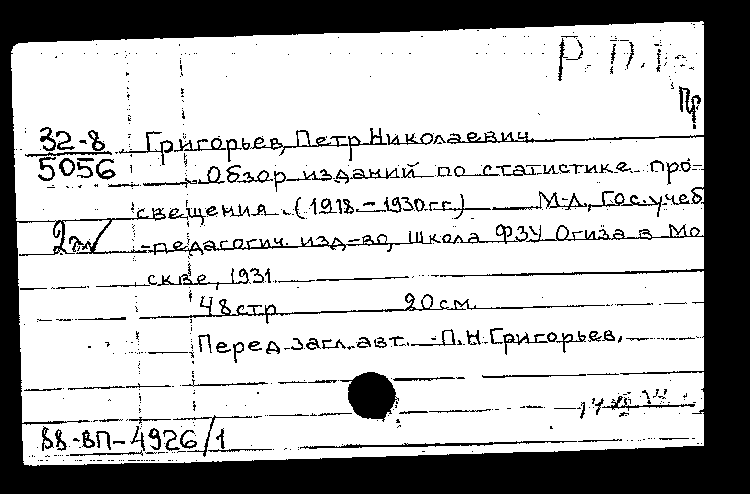 Р. П.
Пр
32-8
5056
Григорьев, Петр Николаевич.
Обзор изданий по статистике про-
свещения. (1918.-1930гг.) М-Л., Гос.учеб
-педагогич. изд-во, Школа ФЗУ Огиза в Мо
скве, 1931.
48стр. 20см.
Перед загл. авт. -П.Н.Григорьев.
88-ВП-4926/1